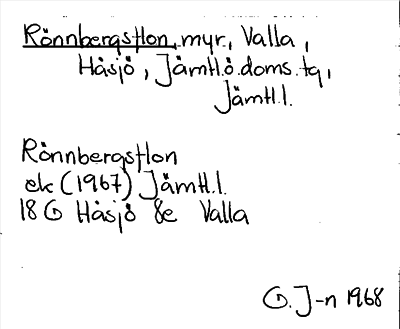 Rönnbergsflon, myr, Valla,
Håsjö, Jämtl.ö.doms.tg,
Jämtl.l.
Rönnbergsflon
ek (1967) Jämtl.l.
18 G Håsjö 8e Valla
G. J-n 1968